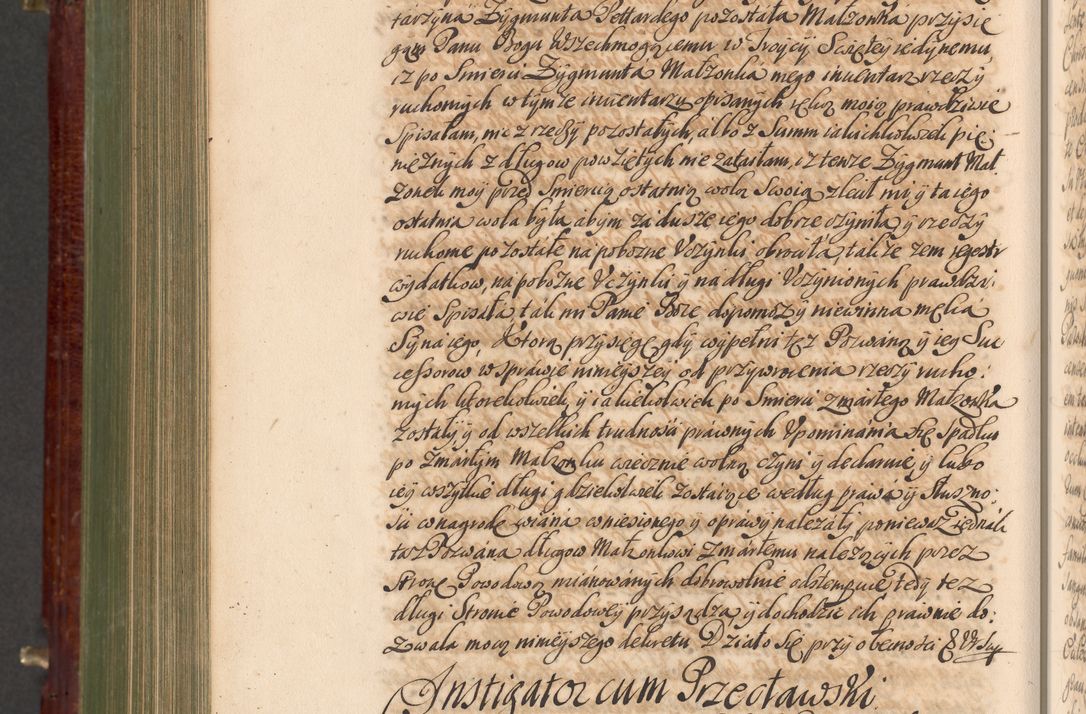 tarzyna Zygmunta Pettardego pozostała Małzonka przysię
gam Panu Bogu Wszechmogącemu w Troycy Swiętey iedynemu
iz po Smierci Zygmunta Małzonka mego inwentarz rzeczy
ruchomych w tymze inwentarzu opisanych ręką moią prawdziwie
Spisałam, nic z rzeczy pozostałych, albo z Summ iakichkolwiek pie:
nięznych z długow powziętych nie zataiłam, iz tenze Zygmunt Mał
zonek moy przed Smiercią ostatnią wolą Swoią zlecił mi y ta iego
ostatnia wola była abym za duszę iego dobrze czyniła y rzeczy
ruchome pozostałe na pobozne Vczynki obrociła, takze zem regestr
wydatkow, na pobozne Vczynki y na długi Vczynionych prawdzi:
wie Spisała, tak mi Panie Boze dopomozy niewinna męka
Syna iego, Ktorą przysięgę gdy wypełni tęz Pozwaną y iey Suc
cessorow w sprawie ninieyszey od przywrocenia rzeczy rucho:
mych ktorekolwiek y iakiekolwiek po Smierci zmarłego Małzonka
zostały y od wszelkich trudnosci prawnych Vpominania się Spadku
po Zmarłym Małzonku wiecznie wolną czyni y declaruie, y lubo
iey wszytkie długi gdziekolwiek zostaiące według prawa y Słuszno:
sci w nagrodę wiana wniesionego y oprawy nalezały poniewasz iednak
taz Pozwana długow Małzonkowi Zmarłemu nalezących przez
stronę Powodową mianowanych dobrowolnie odstempuie, tedy tez
długi Stronie Powodowey przysądza, y dochodzic ich prawnie do:
zwala mocą ninieyszego dekretu. Działo Się przy obecnosci &
Instigator cum Przecławski